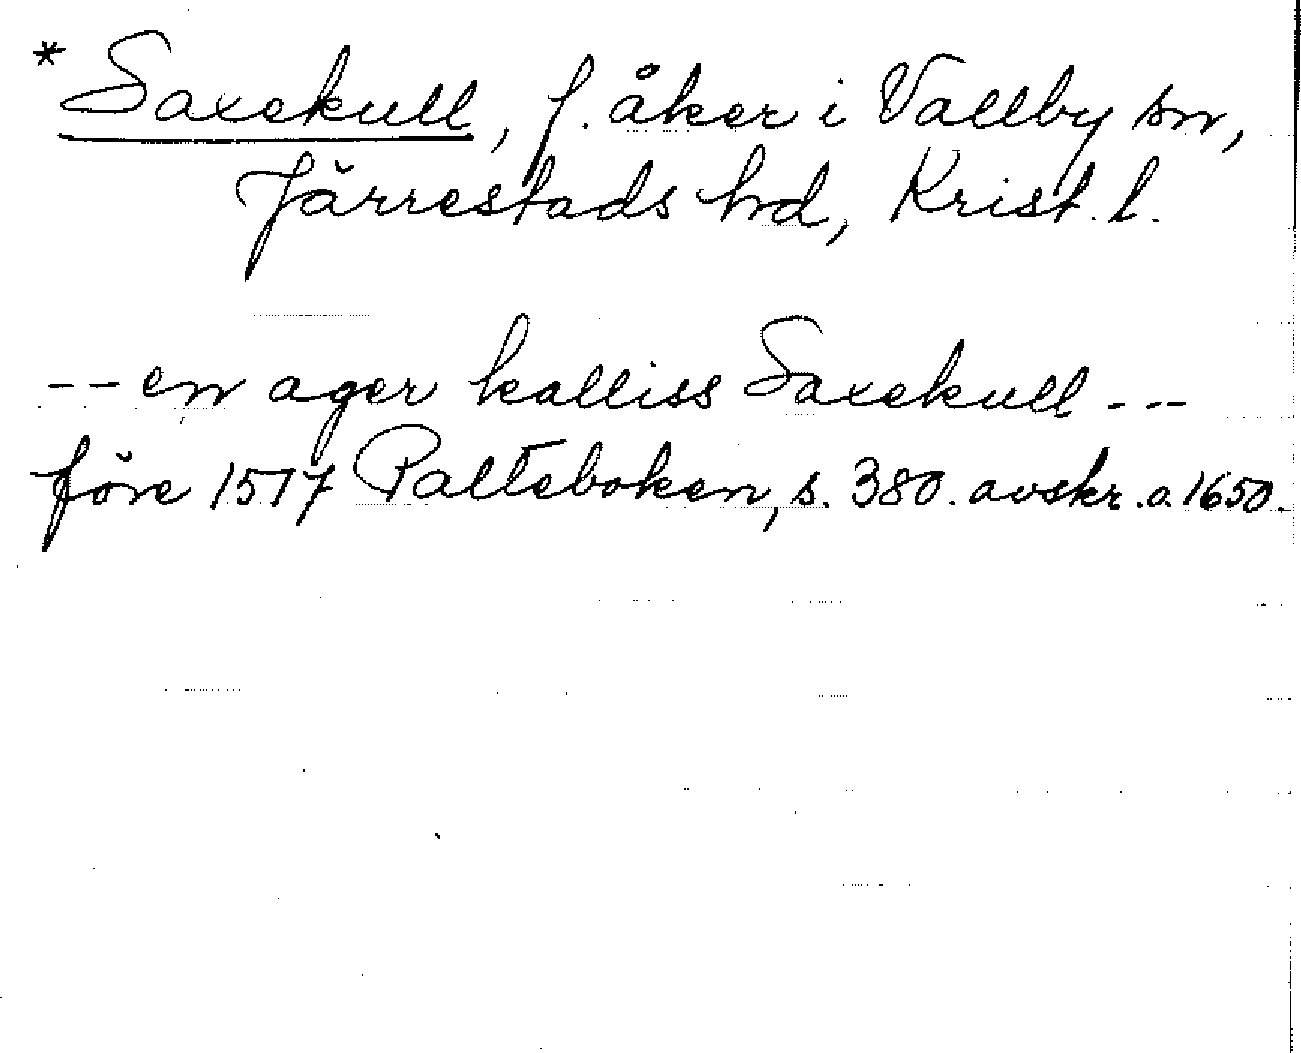 * Saxekull, f. åker i Vallby sn,
Järrestads hd, Krist. l.
-- en ager kalliss Saxekull ---
före 1517 Palteboken, s. 380. avskr. o. 1650.